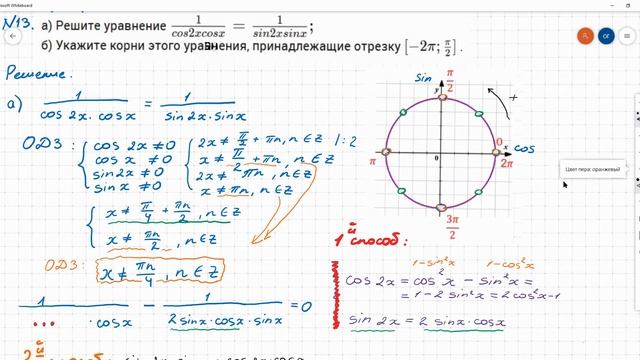 Microsoft Whiteboard
№13. а) Решите уравнение 1/cos2xcosx = 1/sin2xsinx;
б) Укажите корни этого уравнения, принадлежащие отрезку [−2π; π/2].
Решение.
а) 1/cos 2x · cosx = 1/sin 2x · sinx
ОДЗ: { cos 2x ≠ 0 { 2x ≠ π/2 + πn, n ∈ Z | : 2
cos x ≠ 0 x ≠ π/2 + πn, n ∈ Z
sin2x ≠ 0 2x ≠ πn, n ∈ Z
sin x ≠ 0 x ≠ πn, n ∈ Z
{ x ≠ π/4 + πn/2, n ∈ Z
x ≠ πn/2, n ∈ Z
ОДЗ: x ≠ πn/4, n ∈ Z
1/... · cosx − 1/2sinx · cosx · sinx = 0
Sin
π/2
y
+
π
0
0
x
cos
2π
3π/2
Цвет пера: оранжевый
1й способ:
1−sin²x 1−cos²x
cos 2x = cos²x − sin²x =
= 1 − 2 sin²x = 2cos²x−1
sin 2x = 2 sinx · cosx